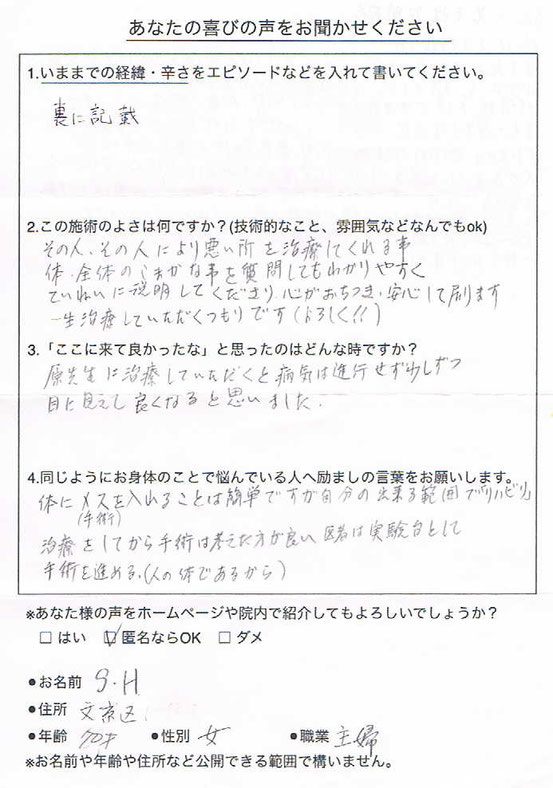 あなたの喜びの声をお聞かせください
1.いままでの経緯・辛さをエピソードなどを入れて書いてください。
裏に記載
2.この施術のよさは何ですか？(技術的なこと、雰囲気などなんでもok)
その人、その人により悪い所を治療してくれる事
体・全体のこまかな事を質問してもわかりやすく
ていねいに説明してくださり、心がおちつき、安心して居ります
一生治療していただくつもりです(よろしく!!)
3.「ここに来て良かったな」と思ったのはどんな時ですか？
原先生に治療していただくと病気は進行せず少しずつ
目に見えて良くなると思いました.
4.同じようにお身体のことで悩んでいる人へ励ましの言葉をお願いします。
体にメスを入れることは簡単ですが自分の出来る範囲でリハビリ
(手術)
治療をしてから手術は考えた方が良い 医者は実験台として
手術を進める.(人の体であるから)
※あなた様の声をホームページや院内で紹介してもよろしいでしょうか？
□ はい ☑ 匿名ならOK □ ダメ
●お名前 S.H
●住所 文京区
●年齢 ●性別 女 ●職業 主婦
※お名前や年齢や住所など公開できる範囲で構いません。